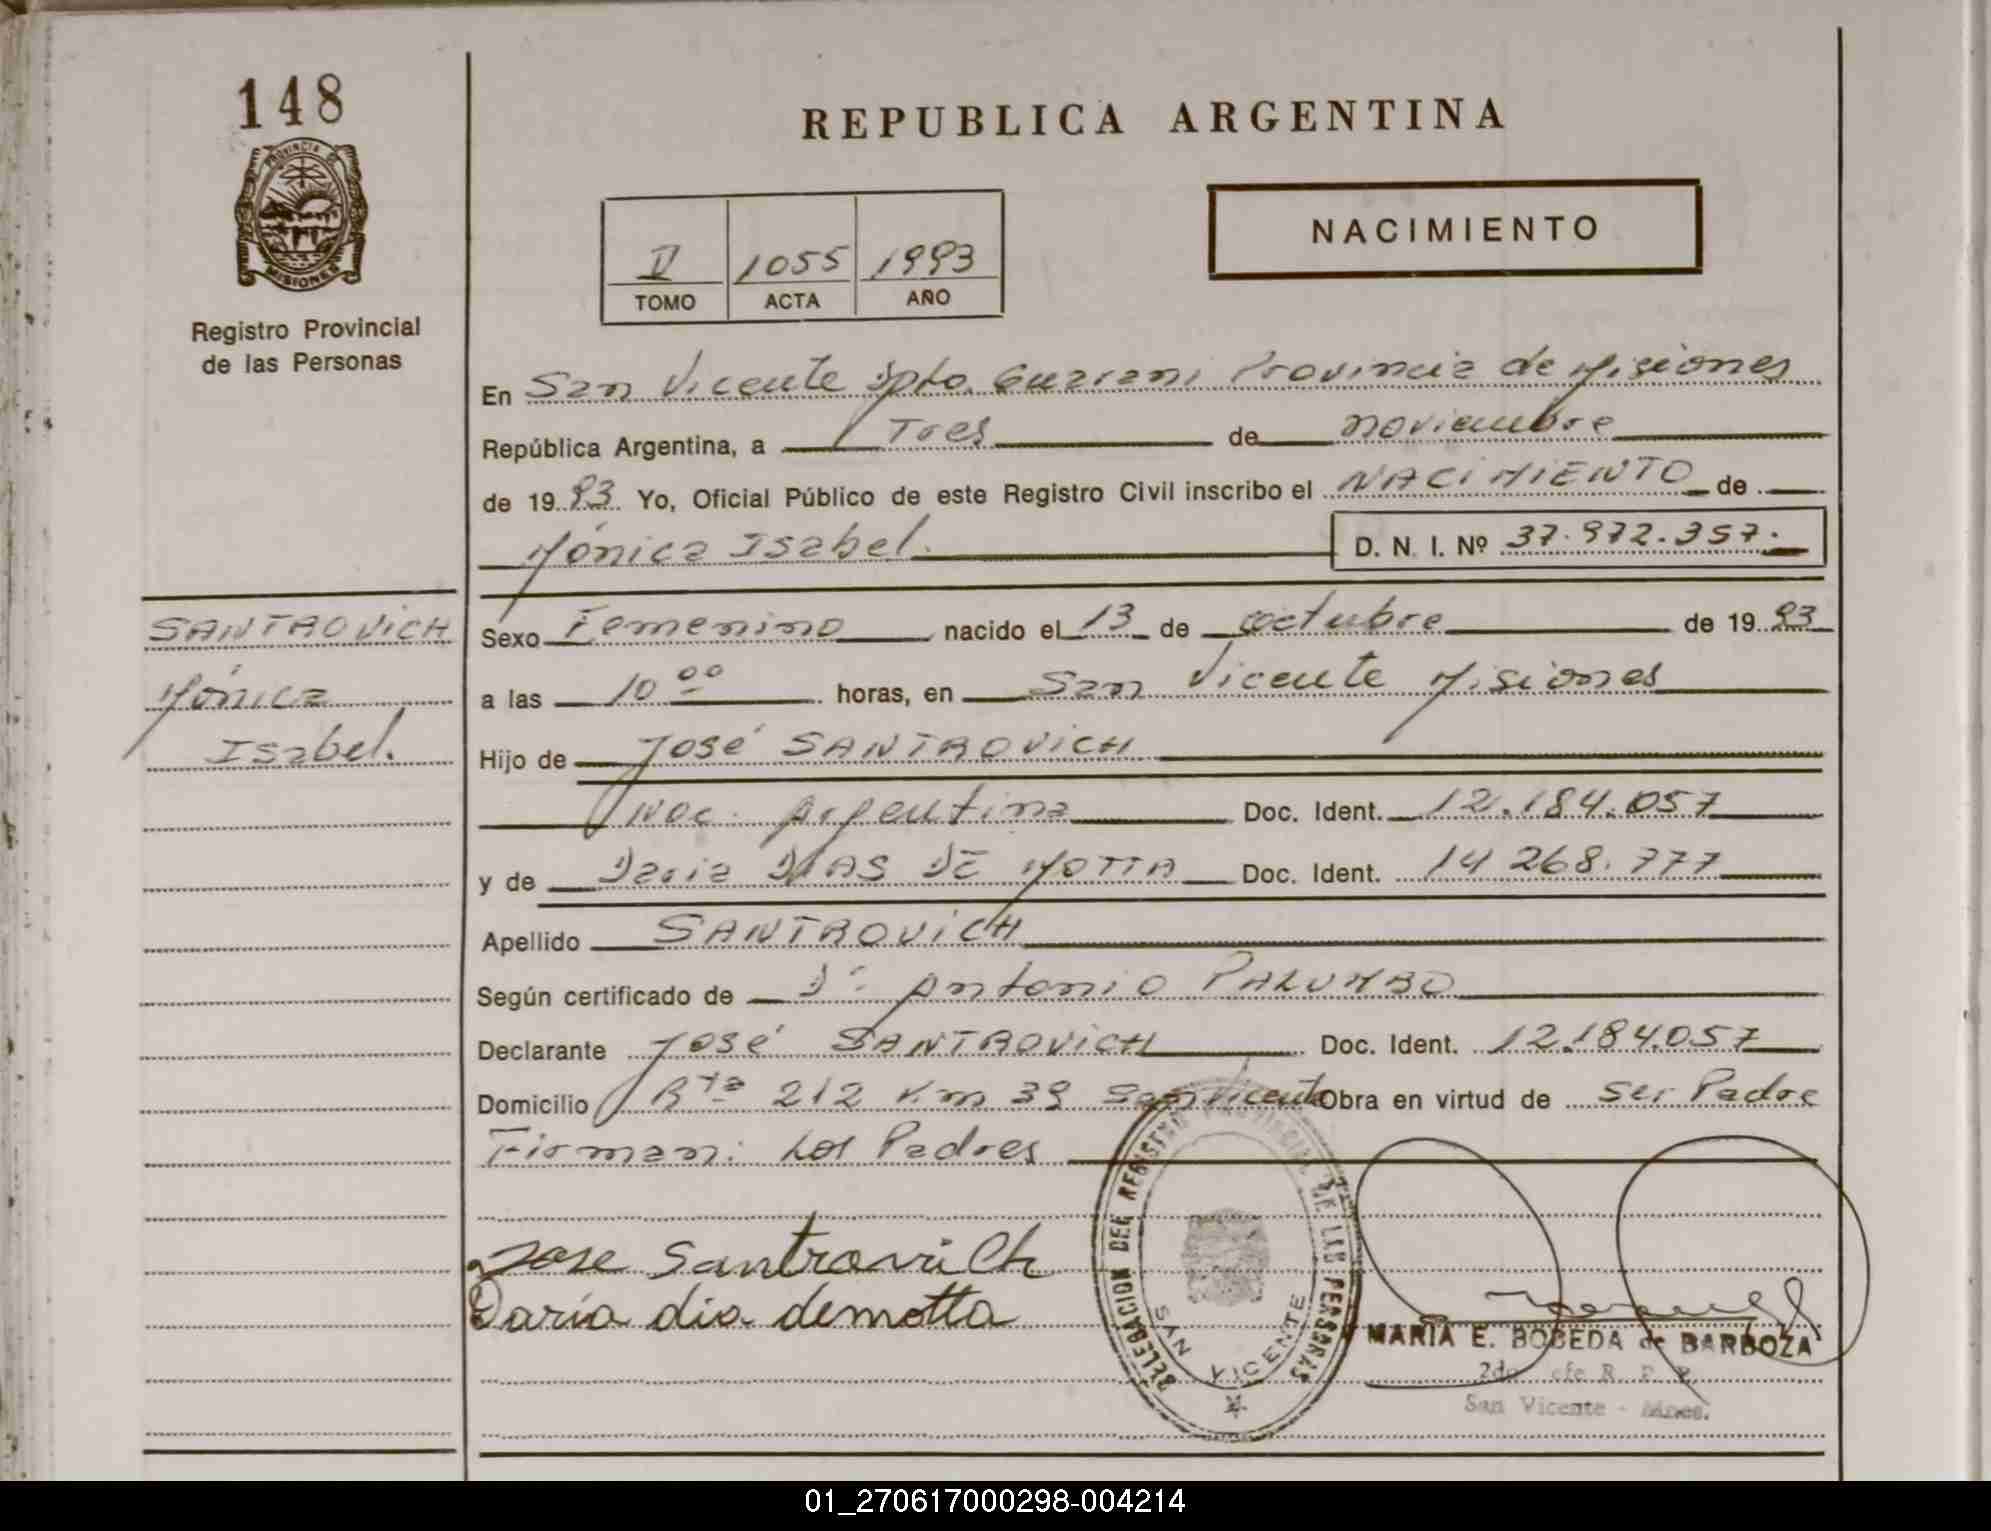 148
PROVINCIA DE
MISIONES
Registro Provincial
de las Personas
REPUBLICA ARGENTINA
NACIMIENTO
II 1055 1993
TOMO ACTA AÑO
En San Vicente Dpto. Guarani Provincia de Misiones
República Argentina, a Tres de noviembre
de 1993 Yo, Oficial Público de este Registro Civil inscribo el NACIMIENTO de
Mónica Isabel. D. N. I. Nº 37.972.357.
SANTROVICH
Mónica
Isabel.
Sexo Femenino nacido el 13 de octubre de 1993
a las 10 00 horas, en San Vicente Misiones
Hijo de José SANTROVICH
Nac. Argentina Doc. Ident. 12.184.057
y de Daria DIAS DE MOTTA Doc. Ident. 14 268.777
Apellido SANTROVICH
Según certificado de Dr. Antonio PALUMBO
Declarante José SANTROVICH Doc. Ident. 12.184.057
Domicilio Rta 212 Km 39 San Vicente Obra en virtud de ser Padre
Firman: Los Padres
Jose Santrovich
Daría dia demotta
DELEGACION DEL REGISTRO PROVINCIAL DE LAS PERSONAS
SAN VICENTE
MARIA E. BOBEDA de BARBOZA
2do Jefe R. P. P.
San Vicente - Mnes.
01_270617000298-004214